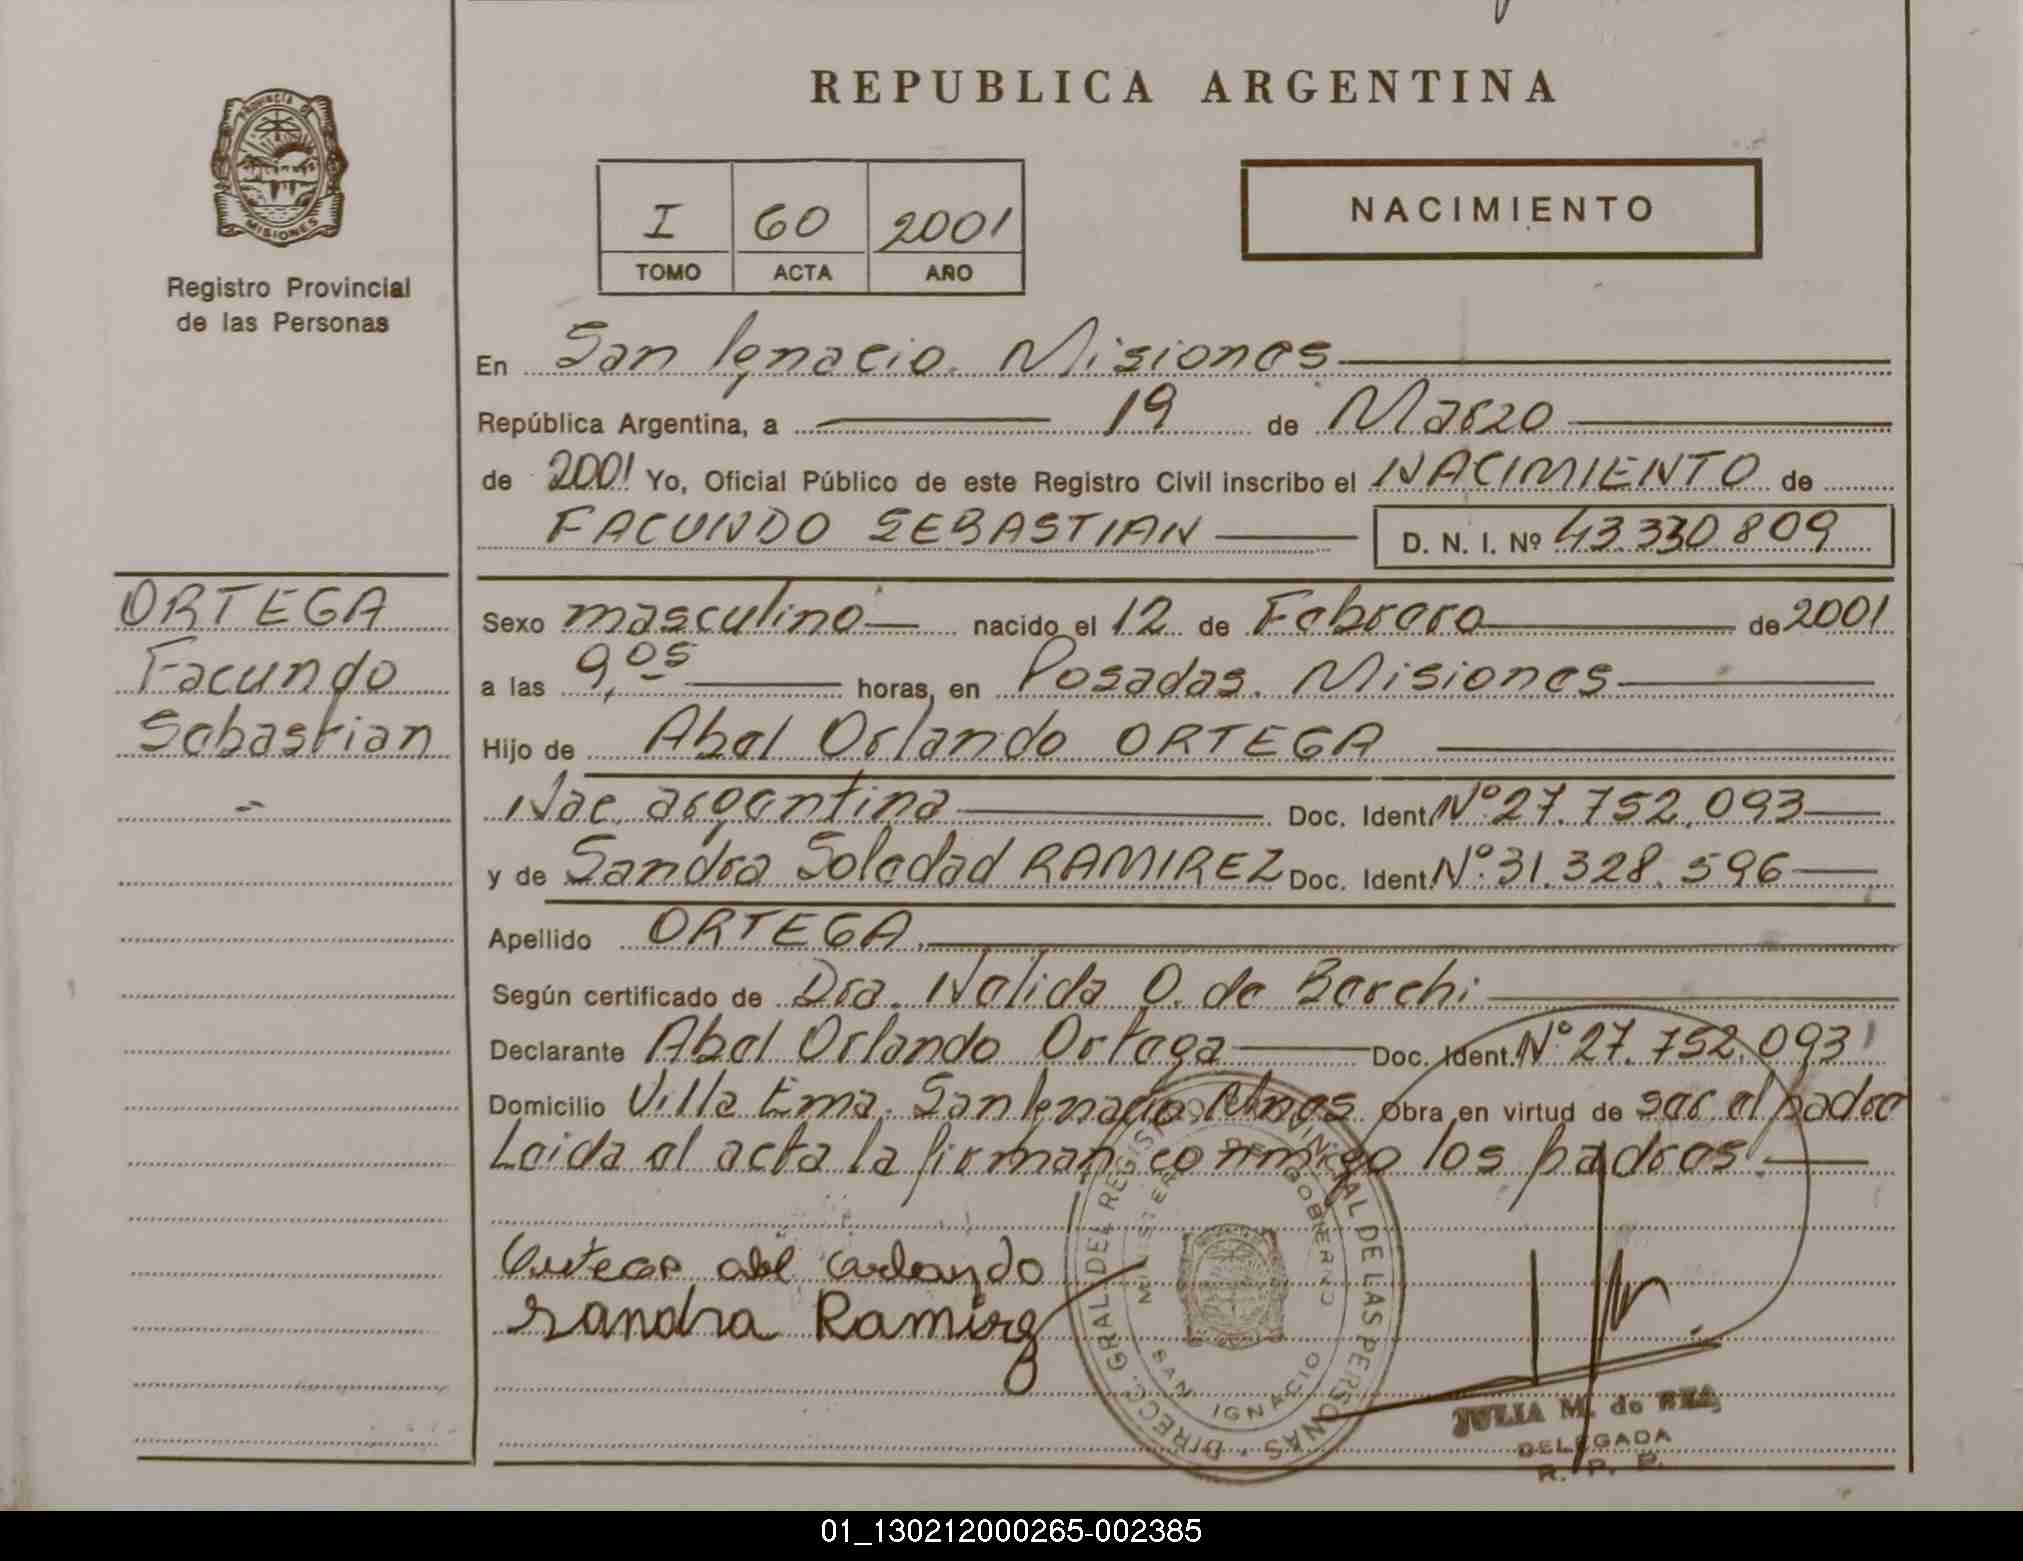 REPUBLICA ARGENTINA
PROVINCIA DE
MISIONES
Registro Provincial
de las Personas
I 60 2001
TOMO ACTA AÑO
NACIMIENTO
En San Ignacio. Misiones
República Argentina, a 19 de Marzo
de 2001 Yo, Oficial Público de este Registro Civil inscribo el NACIMIENTO de
FACUNDO SEBASTIAN D. N. I. Nº 43.330.809
ORTEGA
Facundo
Sebastian
Sexo masculino nacido el 12 de Febrero de 2001
a las 9,05 horas, en Posadas. Misiones
Hijo de Abel Orlando ORTEGA
Nac. argentina Doc. Ident. Nº 27.752.093
y de Sandra Soledad RAMIREZ Doc. Ident. Nº 31.328.596
Apellido ORTEGA
Según certificado de Dra. Nelida O. de Berchi
Declarante Abel Orlando Ortega Doc. Ident. Nº 27.752.093
Domicilio Villa Ema. San Ignacio Mnes Obra en virtud de ser el padre
Leida el acta la firman conmigo los padres.
Ortega abel orlando
Sandra Ramirez
DIRECC. GRAL. DEL REGISTRO PROVINCIAL DE LAS PERSONAS
MINISTERIO DE GOBIERNO
SAN IGNACIO
JULIA M. de
DELEGADA
R. P. P.
01_130212000265-002385